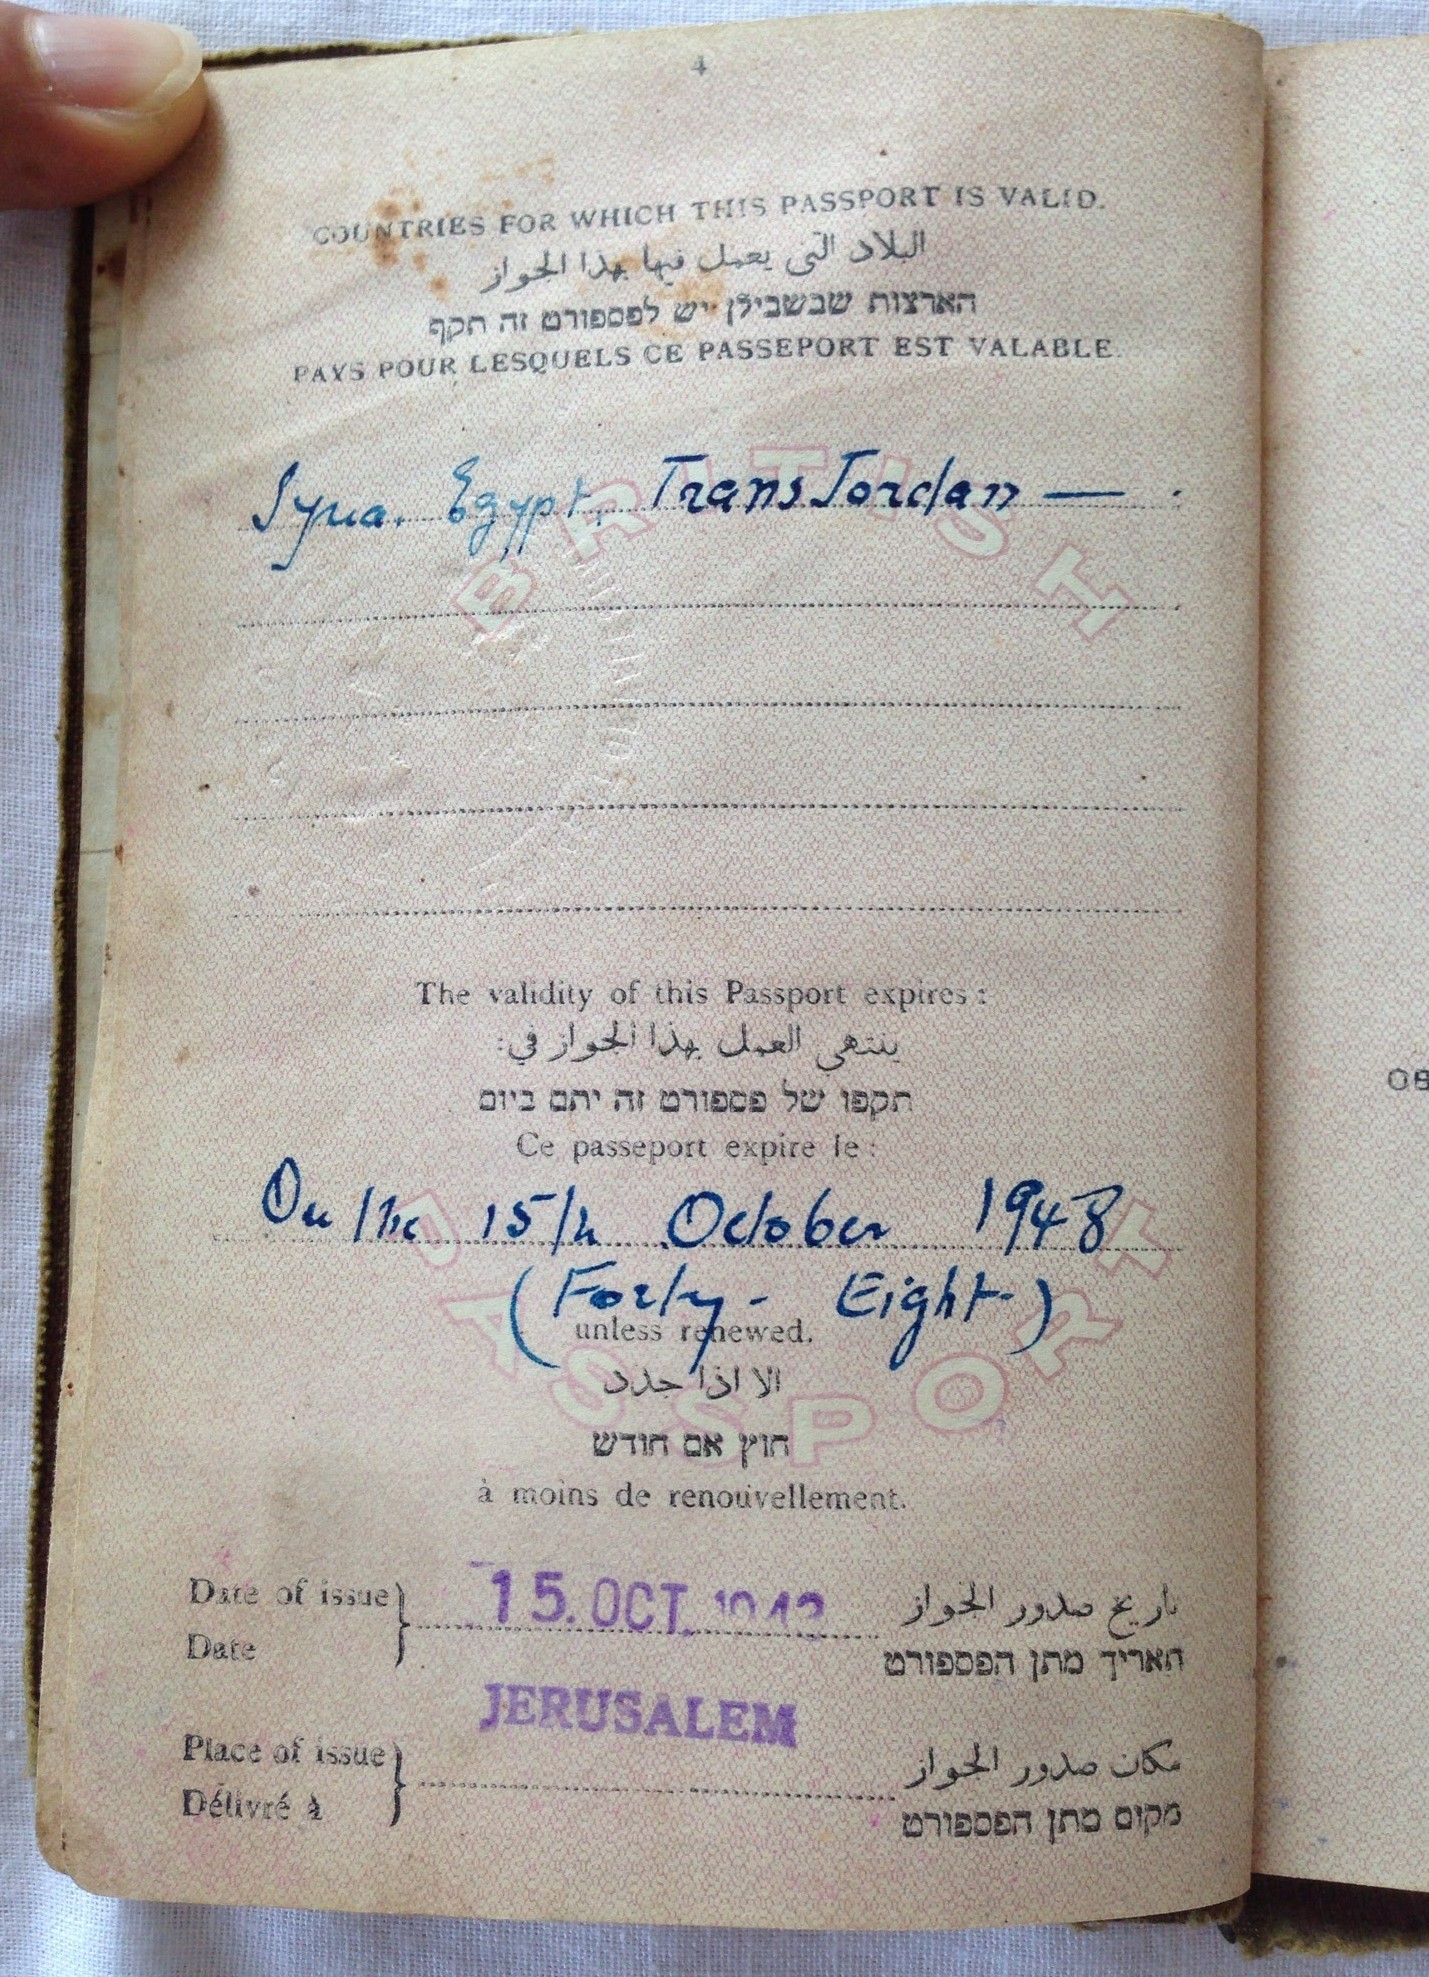 4
COUNTRIES FOR WHICH THIS PASSPORT IS VALID.
البلاد التى يعمل فيها بهذا الجواز
הארצות שבשבילן יש לפספורט זה תקף
PAYS POUR LESQUELS CE PASSEPORT EST VALABLE.
Syria. Egypt. TransJordan — .
BRITISH
The validity of this Passport expires :
ينتهي العمل بهذا الجواز في:
תקפו של פספורט זה יתם ביום
Ce passeport expire le :
On the 15th October 1948
(Forty - Eight-)
unless renewed.
الا اذا جدد
חוץ אם חודש
à moins de renouvellement.
PASSPORT
Date of issue 15. OCT. 1943 تاريخ صدور الجواز
Date תאריך מתן הפספורט
JERUSALEM
Place of issue مكان صدور الجواز
Délivré à מקום מתן הפספורט